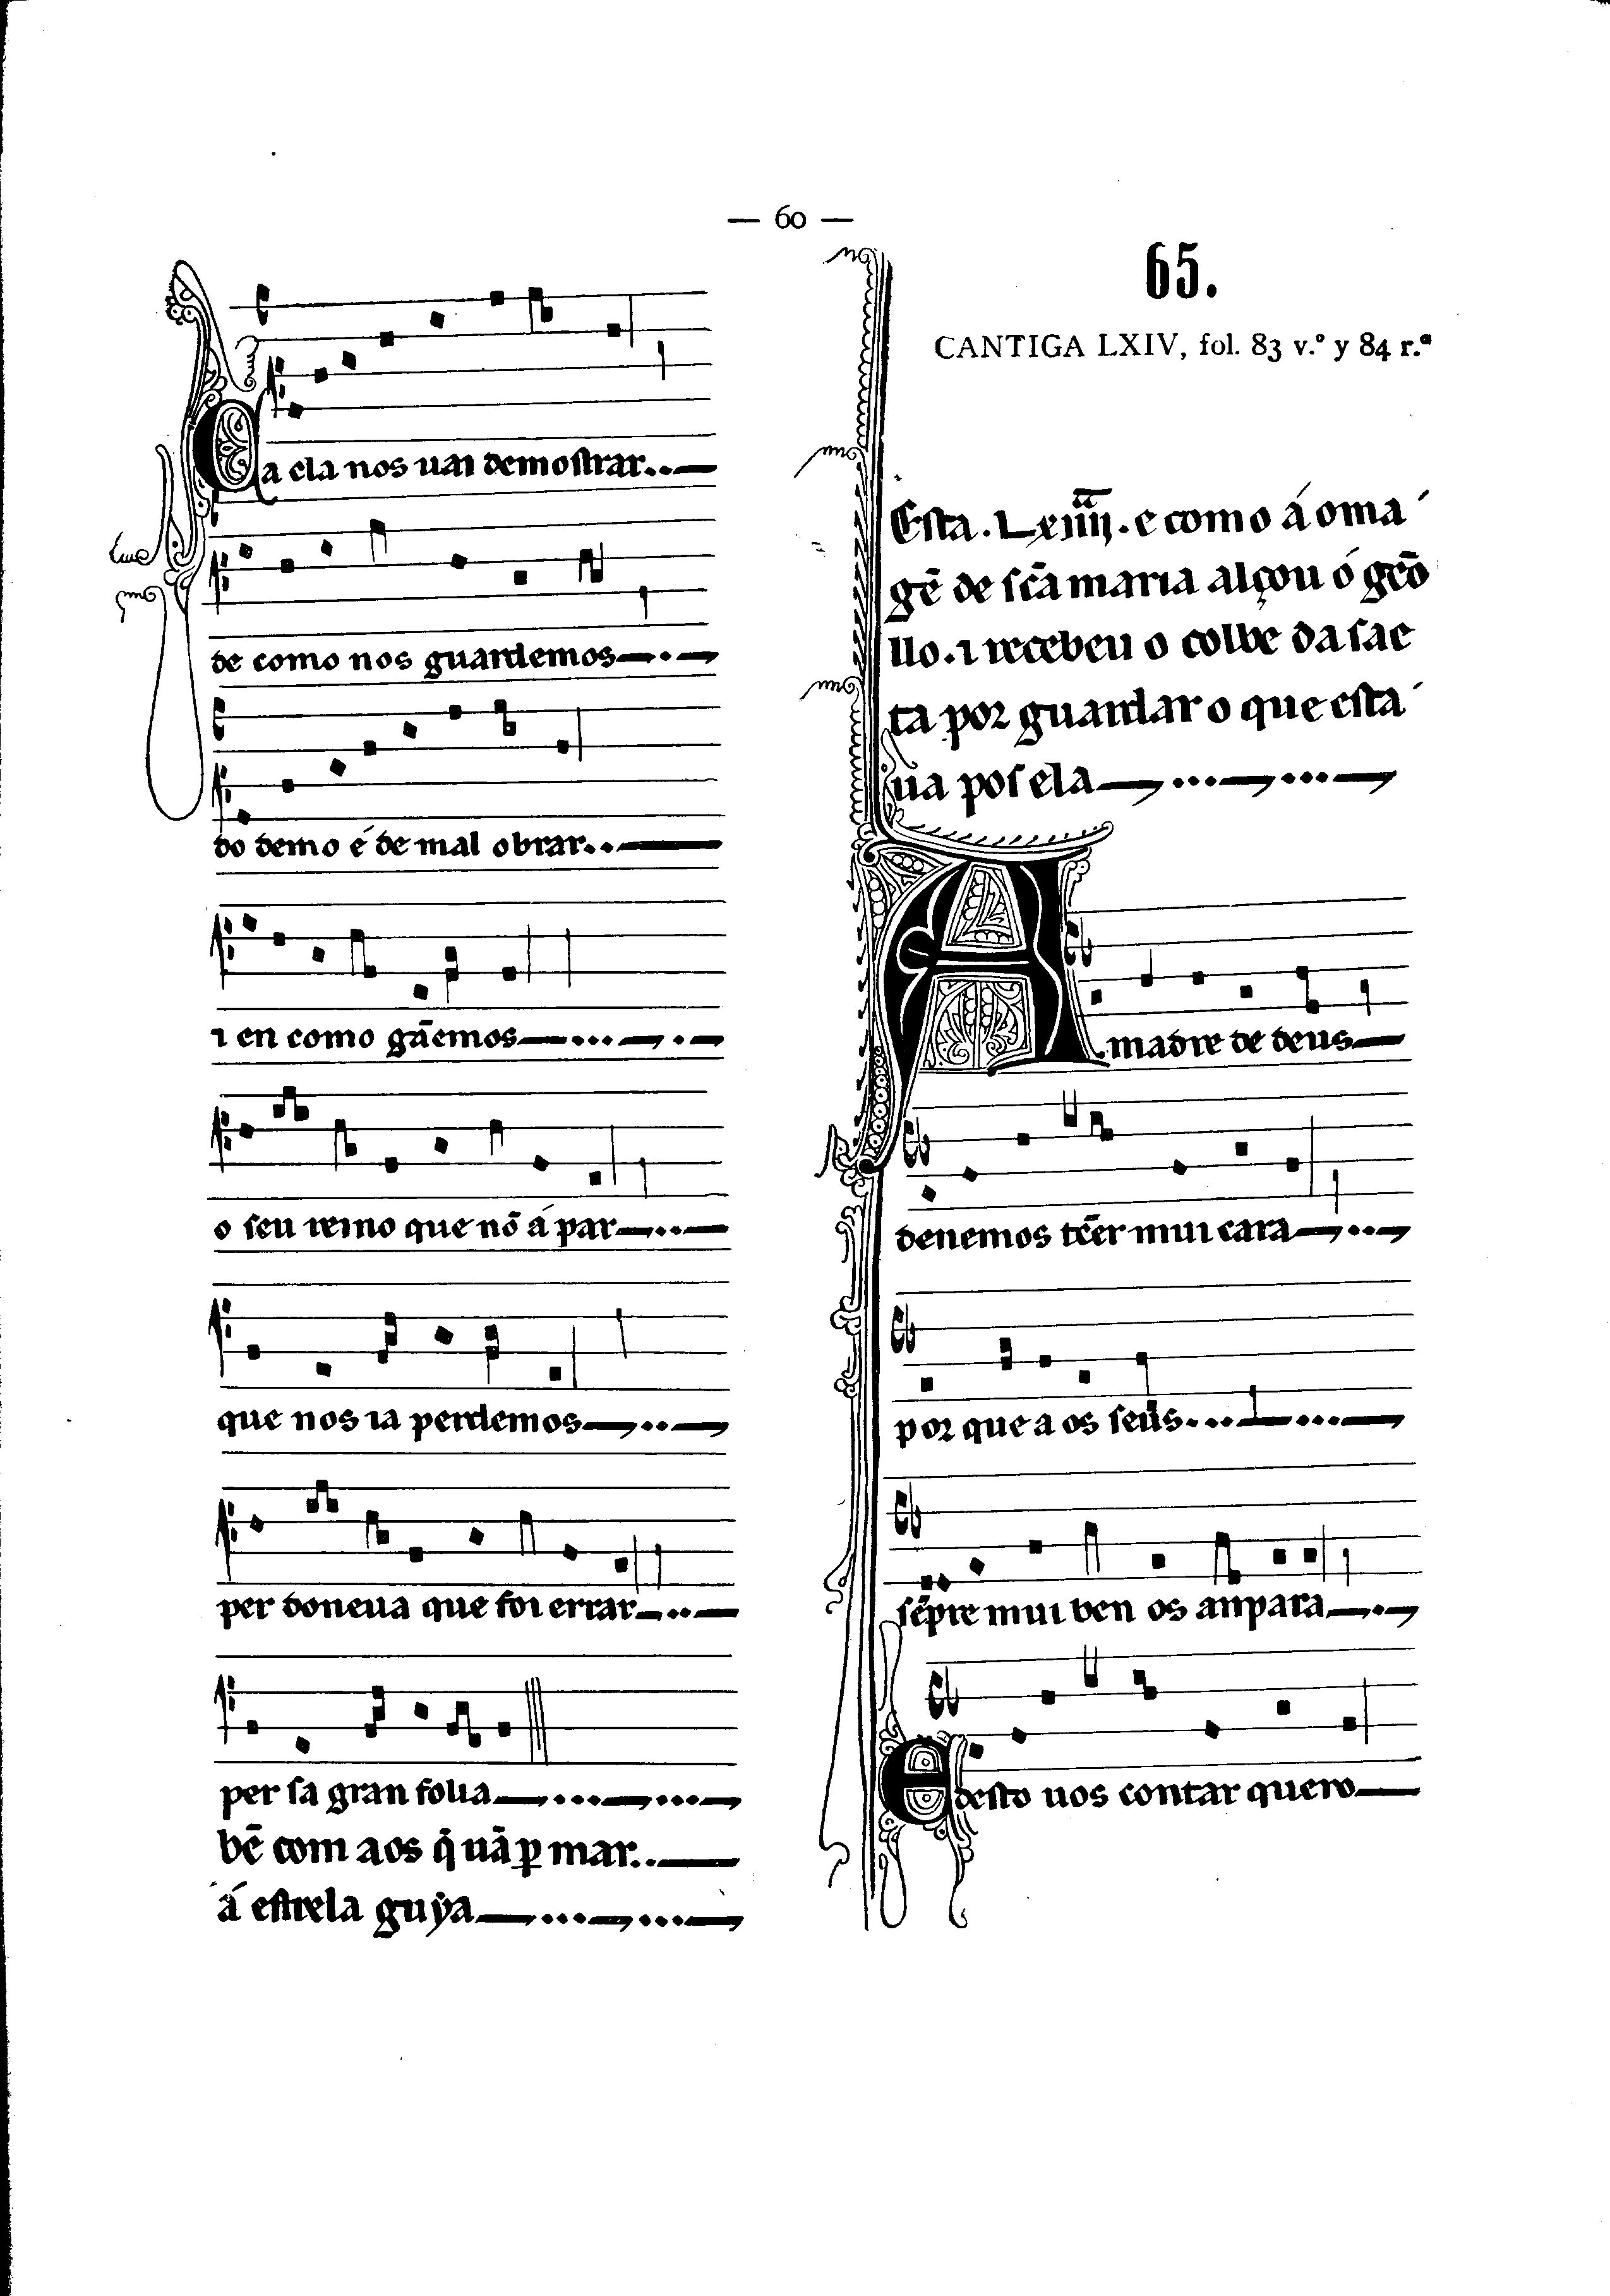 — 60 —
Ca ela nos uai demoſtrar
de como nos guardemos
do demo é de mal obrar
ı en como gāemos
o ſeu reino que nō á par
que nos ia perdemos
per don eua que foi errar
per ſa gran folia
bē com aos q̄ uā ꝑ mar
á eſtrela guẏa
65.
CANTIGA LXIV, fol. 83 v.º y 84 r.ª
Eſta . e como á oma
gē de ſc̄a maria alçou ó gēo
llo . ı recebeu o colbe da ſae
ta por guardar o que eſta
ua poſ ela
A madre de deus
deuemos tēer mui cara
por que a os ſeus
ſēpre mui ben os anpara
E deſto uos contar quero